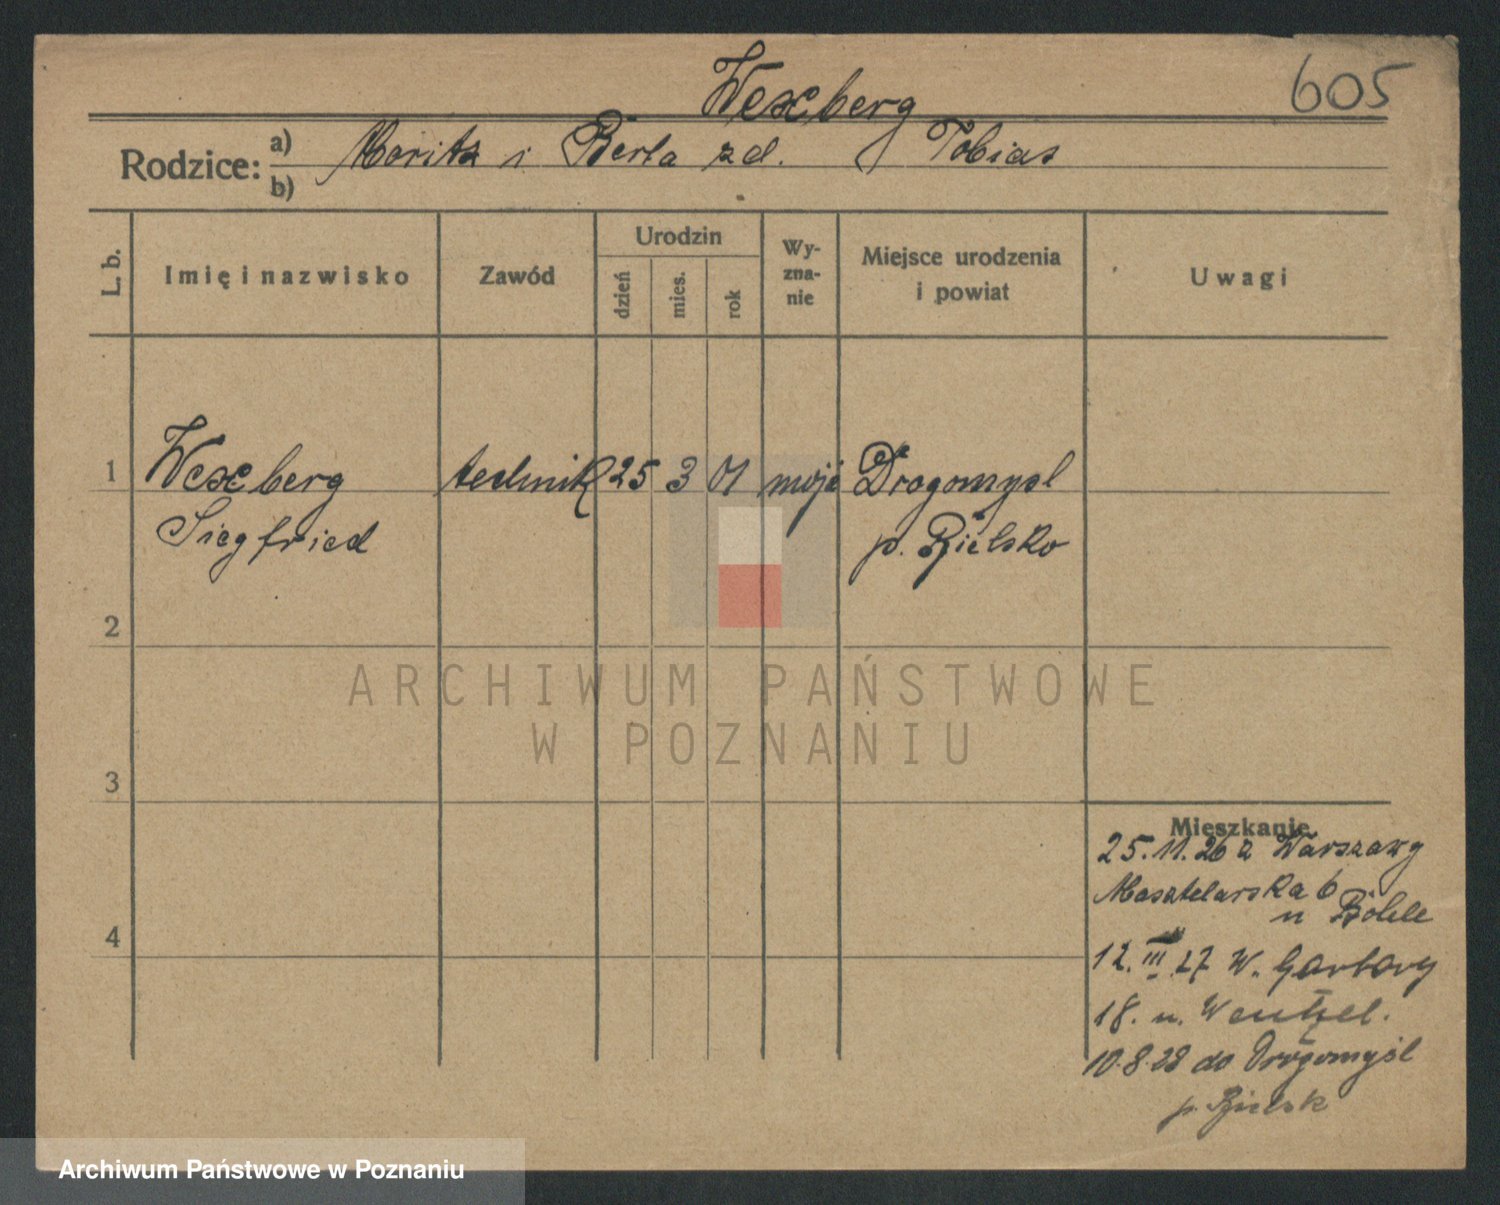 605
Wexberg
Rodzice: a) Moritz i Berta zd. Tobias
b)
L. b.
Imię i nazwisko
Zawód
Urodzin
dzień
mies.
rok
Wy-
zna-
nie
Miejsce urodzenia
i powiat
Uwagi
1 Wexberg technik 25 3 01 mojż Drogomysl
Siegfried p. Bielsko
2
3
4
Mieszkanie
25.11.26 z Warszawy
Masztelarska 6
u
12.III.27 W. Garbary
18. u. Wentzel.
10.8.28 do Drogomyśl
p. Bielsk
ARCHIWUM PAŃSTWOWE
W POZNANIU
Archiwum Państwowe w Poznaniu